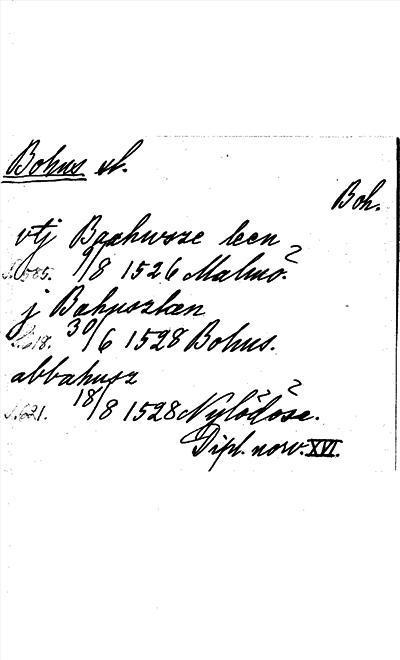 Bohus sl.
Boh.
vtj Baahwsze leen
S. 585. 9/8 1526 Malmö?
j Bahuszlæn
S. 618. 30/6 1528 Bohus.
abbahusz
S. 621. 18/8 1528 Nylödöse?
Dipl. norv. XVI.